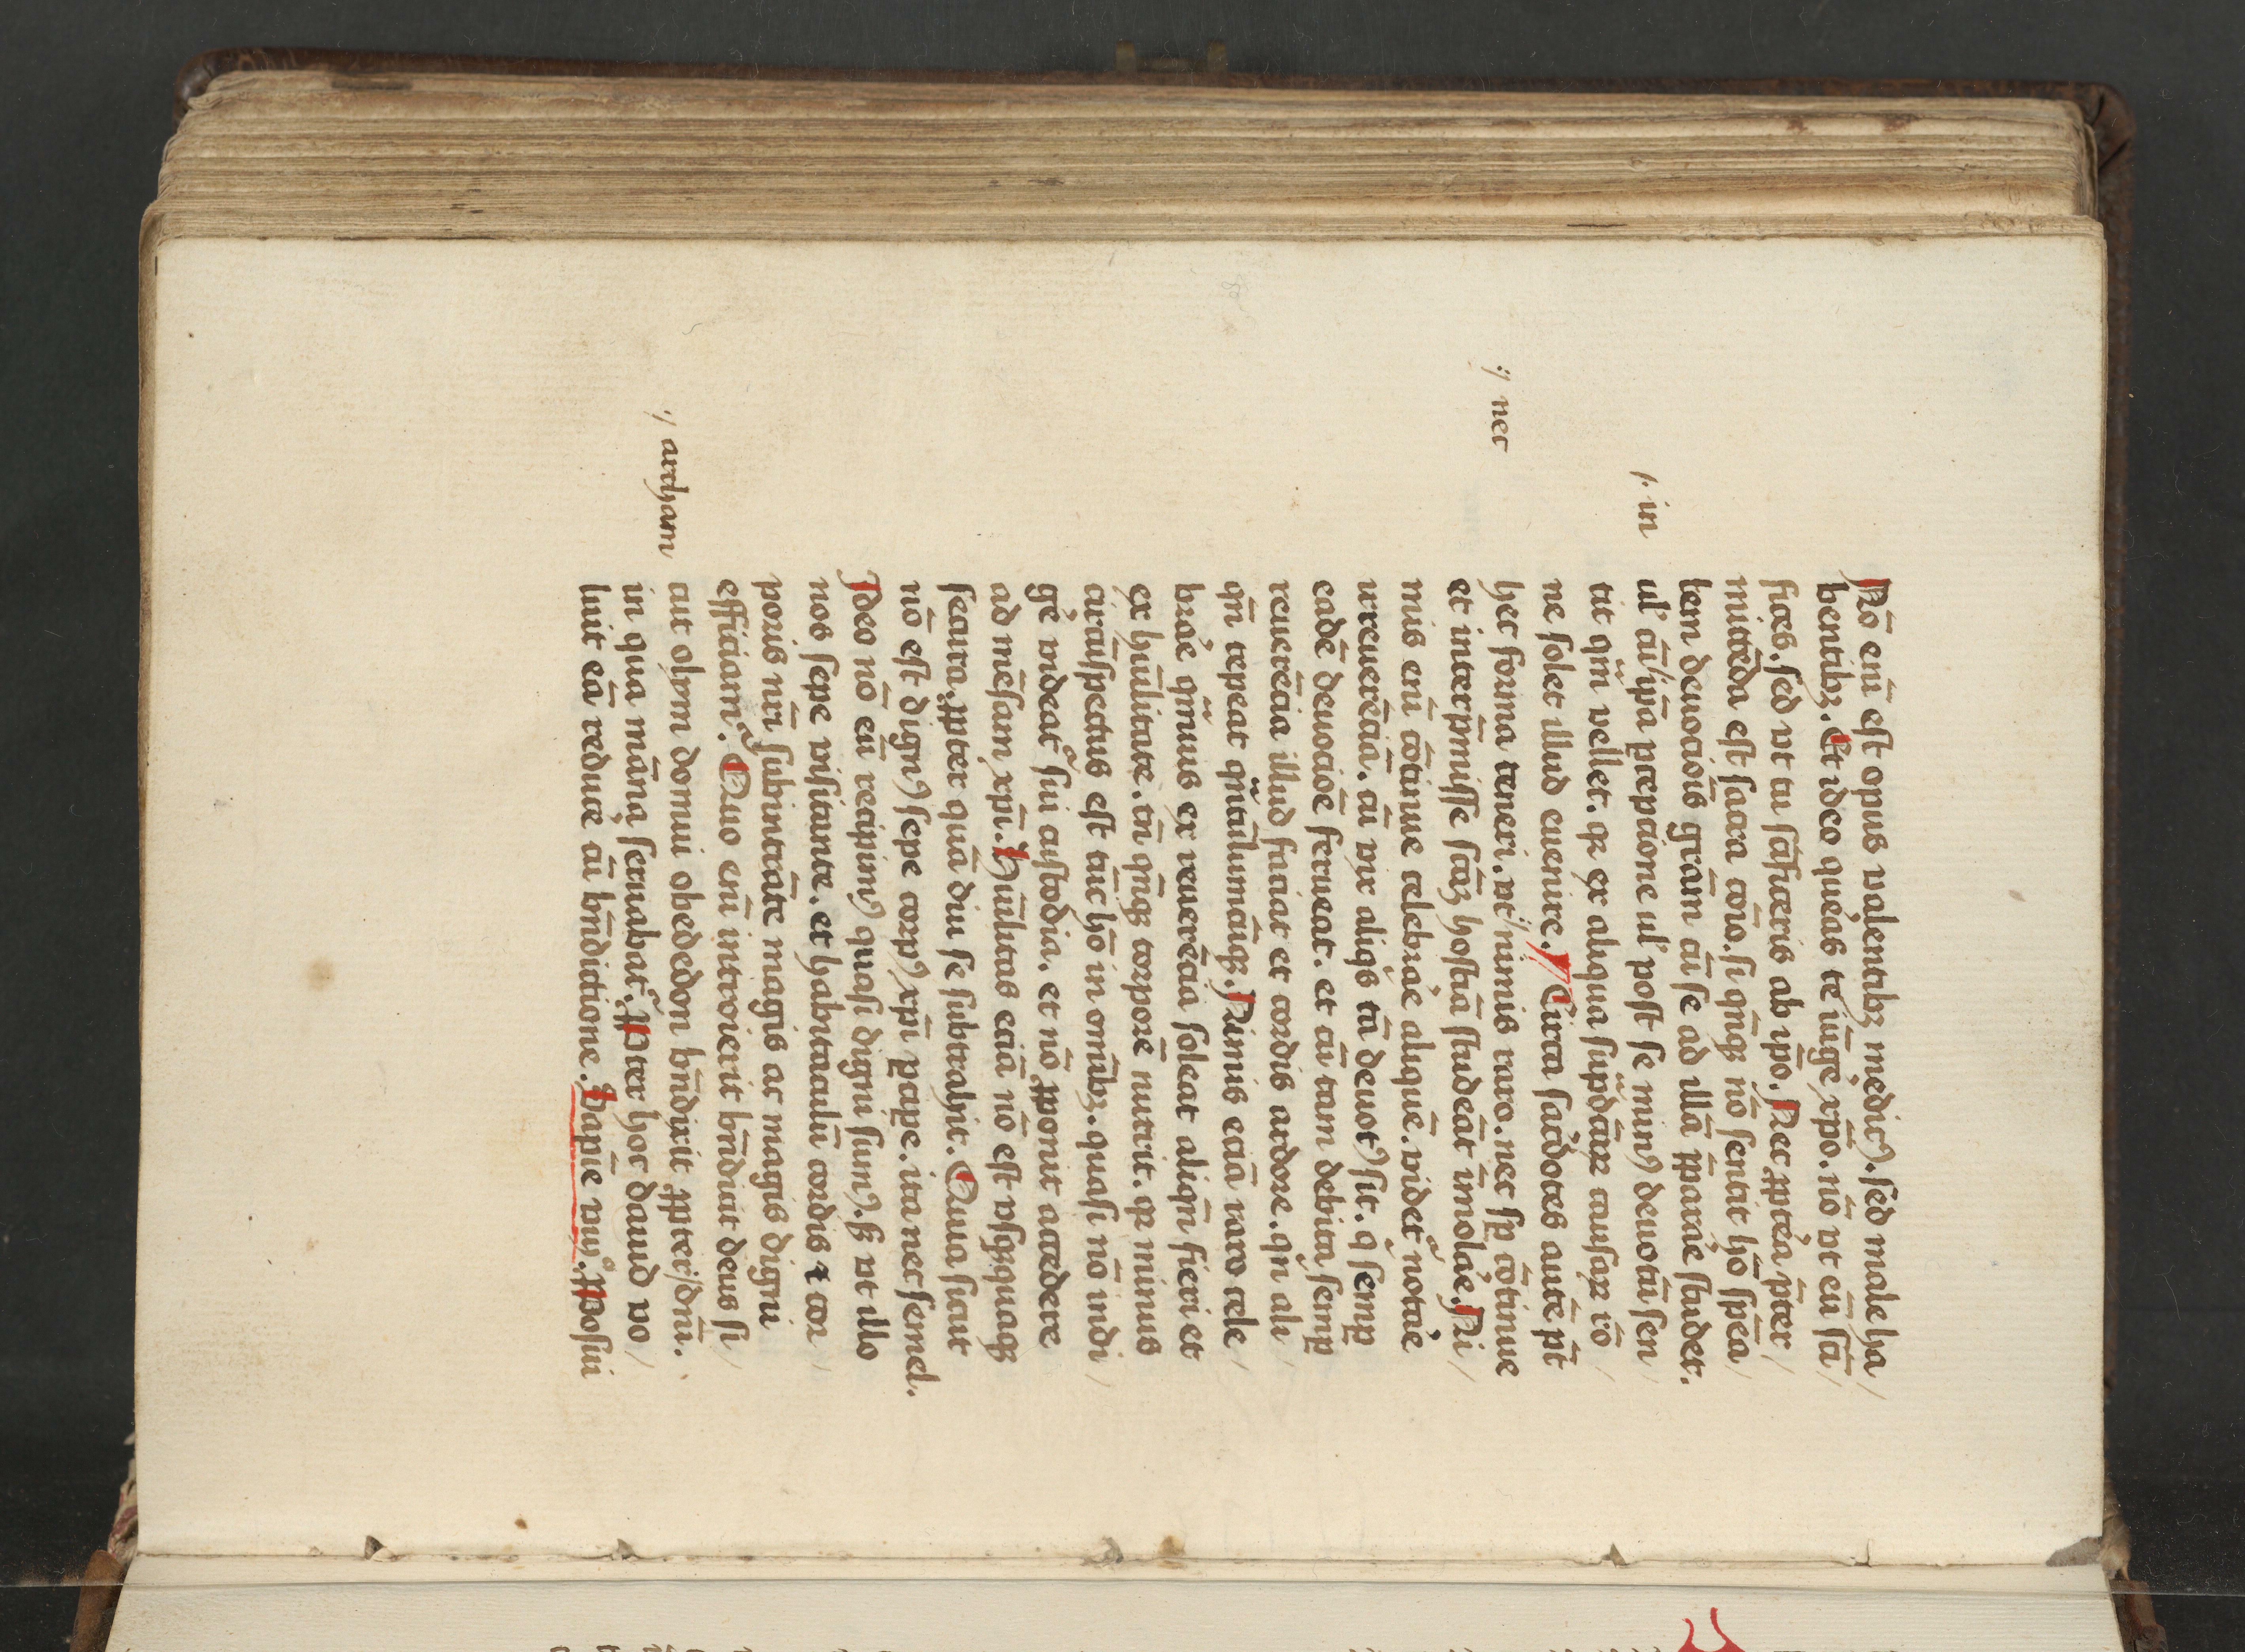 Nō eni̅ eſt opus valentibꝫ medic᷒. ſed male ha/
bentibꝫ. Et ideo quer̾as te iu̅ge̾ xp̅o. nō vt eu̅ ſcī/
fices. ſed vt tu ſcīficeris ab ip̅o. Nec ꝓpter̾a p̅ter/
mitte̅da eſt ſacra co̅io. ſi qn̅qꝫ nō ſentit hō ſpe̅a/
lem deuocio̅is gra̅m cu̅ ſe ad illā p̅parar̾e ſtudet.
/. in
ul' cu̅/ip̅a ꝑceptione ul' poſt ſe min᷒ deuotu̅ ſen/
tit qm̅ vellet. qꝛ ex aliqua ſup̅dc̅aꝝ cauſaꝝ rō/
ne ſolet illud euenire. Circa ſacer̾dotes aute̅ pt̅
:/ nec
hec forma teneri. vt://nimis raro. nec ſꝑ co̅tinue
et interp̅miſſe ſc̅aꝫ hoſtiā ſtudea̅t i̅molar̾e. Ni/
mis eni̅ co̅tinue celebrar̾e alique̅. videt᷑ notar̾e
irreuere̅ciā. cu̅ vix aliqͥs tā deuot᷒ ſit. q̇ ſemꝑ
eade̅ deuocio̅e ferueat. et cu̅ tam debita ſemꝑ
reuere̅cia illud faciat et cordis ardore. qn̅ ali/
qn̅ tepeat qn̅tulumcu̅qꝫ. Nimis eciā raro cele/
brar̾e qm̅uis ex reuere̅cia ſoleat aliqn̅ fieri et
ex hu̅ilitate. tn̅ qn̅qꝫ torpore̅ nutrit. qꝛ minus
circu̅ſpectus eſt tūc hō in omi̅bꝫ. quaſi nō indi/
ge̾t videat᷑ ſui cuſtodia. et nō ꝓponit accedere
ad me̅ſam xp̅i. Hu̅ilitas eciā nō eſt vſqꝫquaqꝫ
ſecura. ꝓpter quā diu ſe ſubtrahit. Quia ſicut
nō eſt dign᷒ ſepe corp᷒ xp̅i ꝑcipe. ita nec ſemel.
Ideo nō eu̅ recipim᷒ quaſi digni ſum᷒. ſꝫ vt illo
nos ſepe viſitante. et habitaculu̅ cordis ⁊ cor/
poris nr̅i ſubintra̅te magis ac magis digni
efficiam᷑. Quo eni̅ introierit bn̅dicit deus ſi/
:/ archam
cut olym domui obededon bn̅dixit ꝓpter:/dn̅i.
in qua māna ſeruabat᷑. Ꝓpter hoc dauid vo/
luit eā reducer̾e cu̅ bn̅dictione. Sapi̅e viijº. Ꝓpoſui